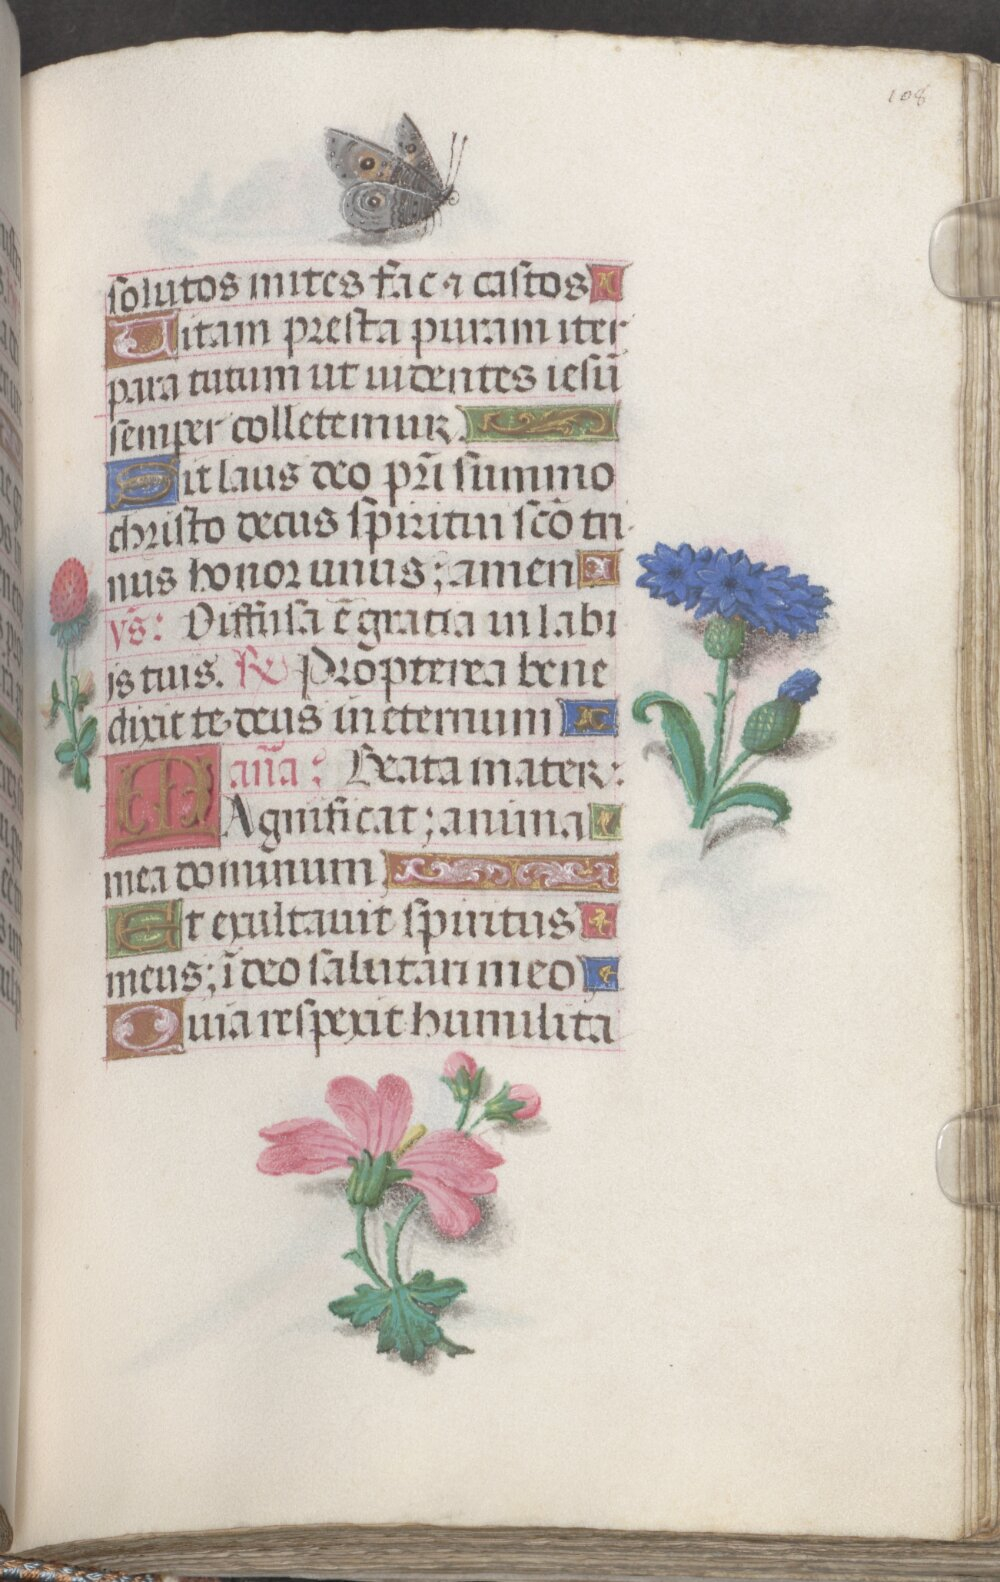 108
solutos mites fac ⁊ castos
Uitam presta puram iter
para tutum ut uidentes iesū
semper colletemur.
Sit laus deo pr̄i summo
christo decus spiritui sc̄o tri
nus honor unus; amen
vs: Diffusa ē gracia in labi
is tuis. R Propterea bene
dixit te deus in eternum
aña: Beata mater:
MAgnificat; anima
mea dominum
Et exultauit spiritus
meus; ī deo salutari meo
Quia respexit humilita